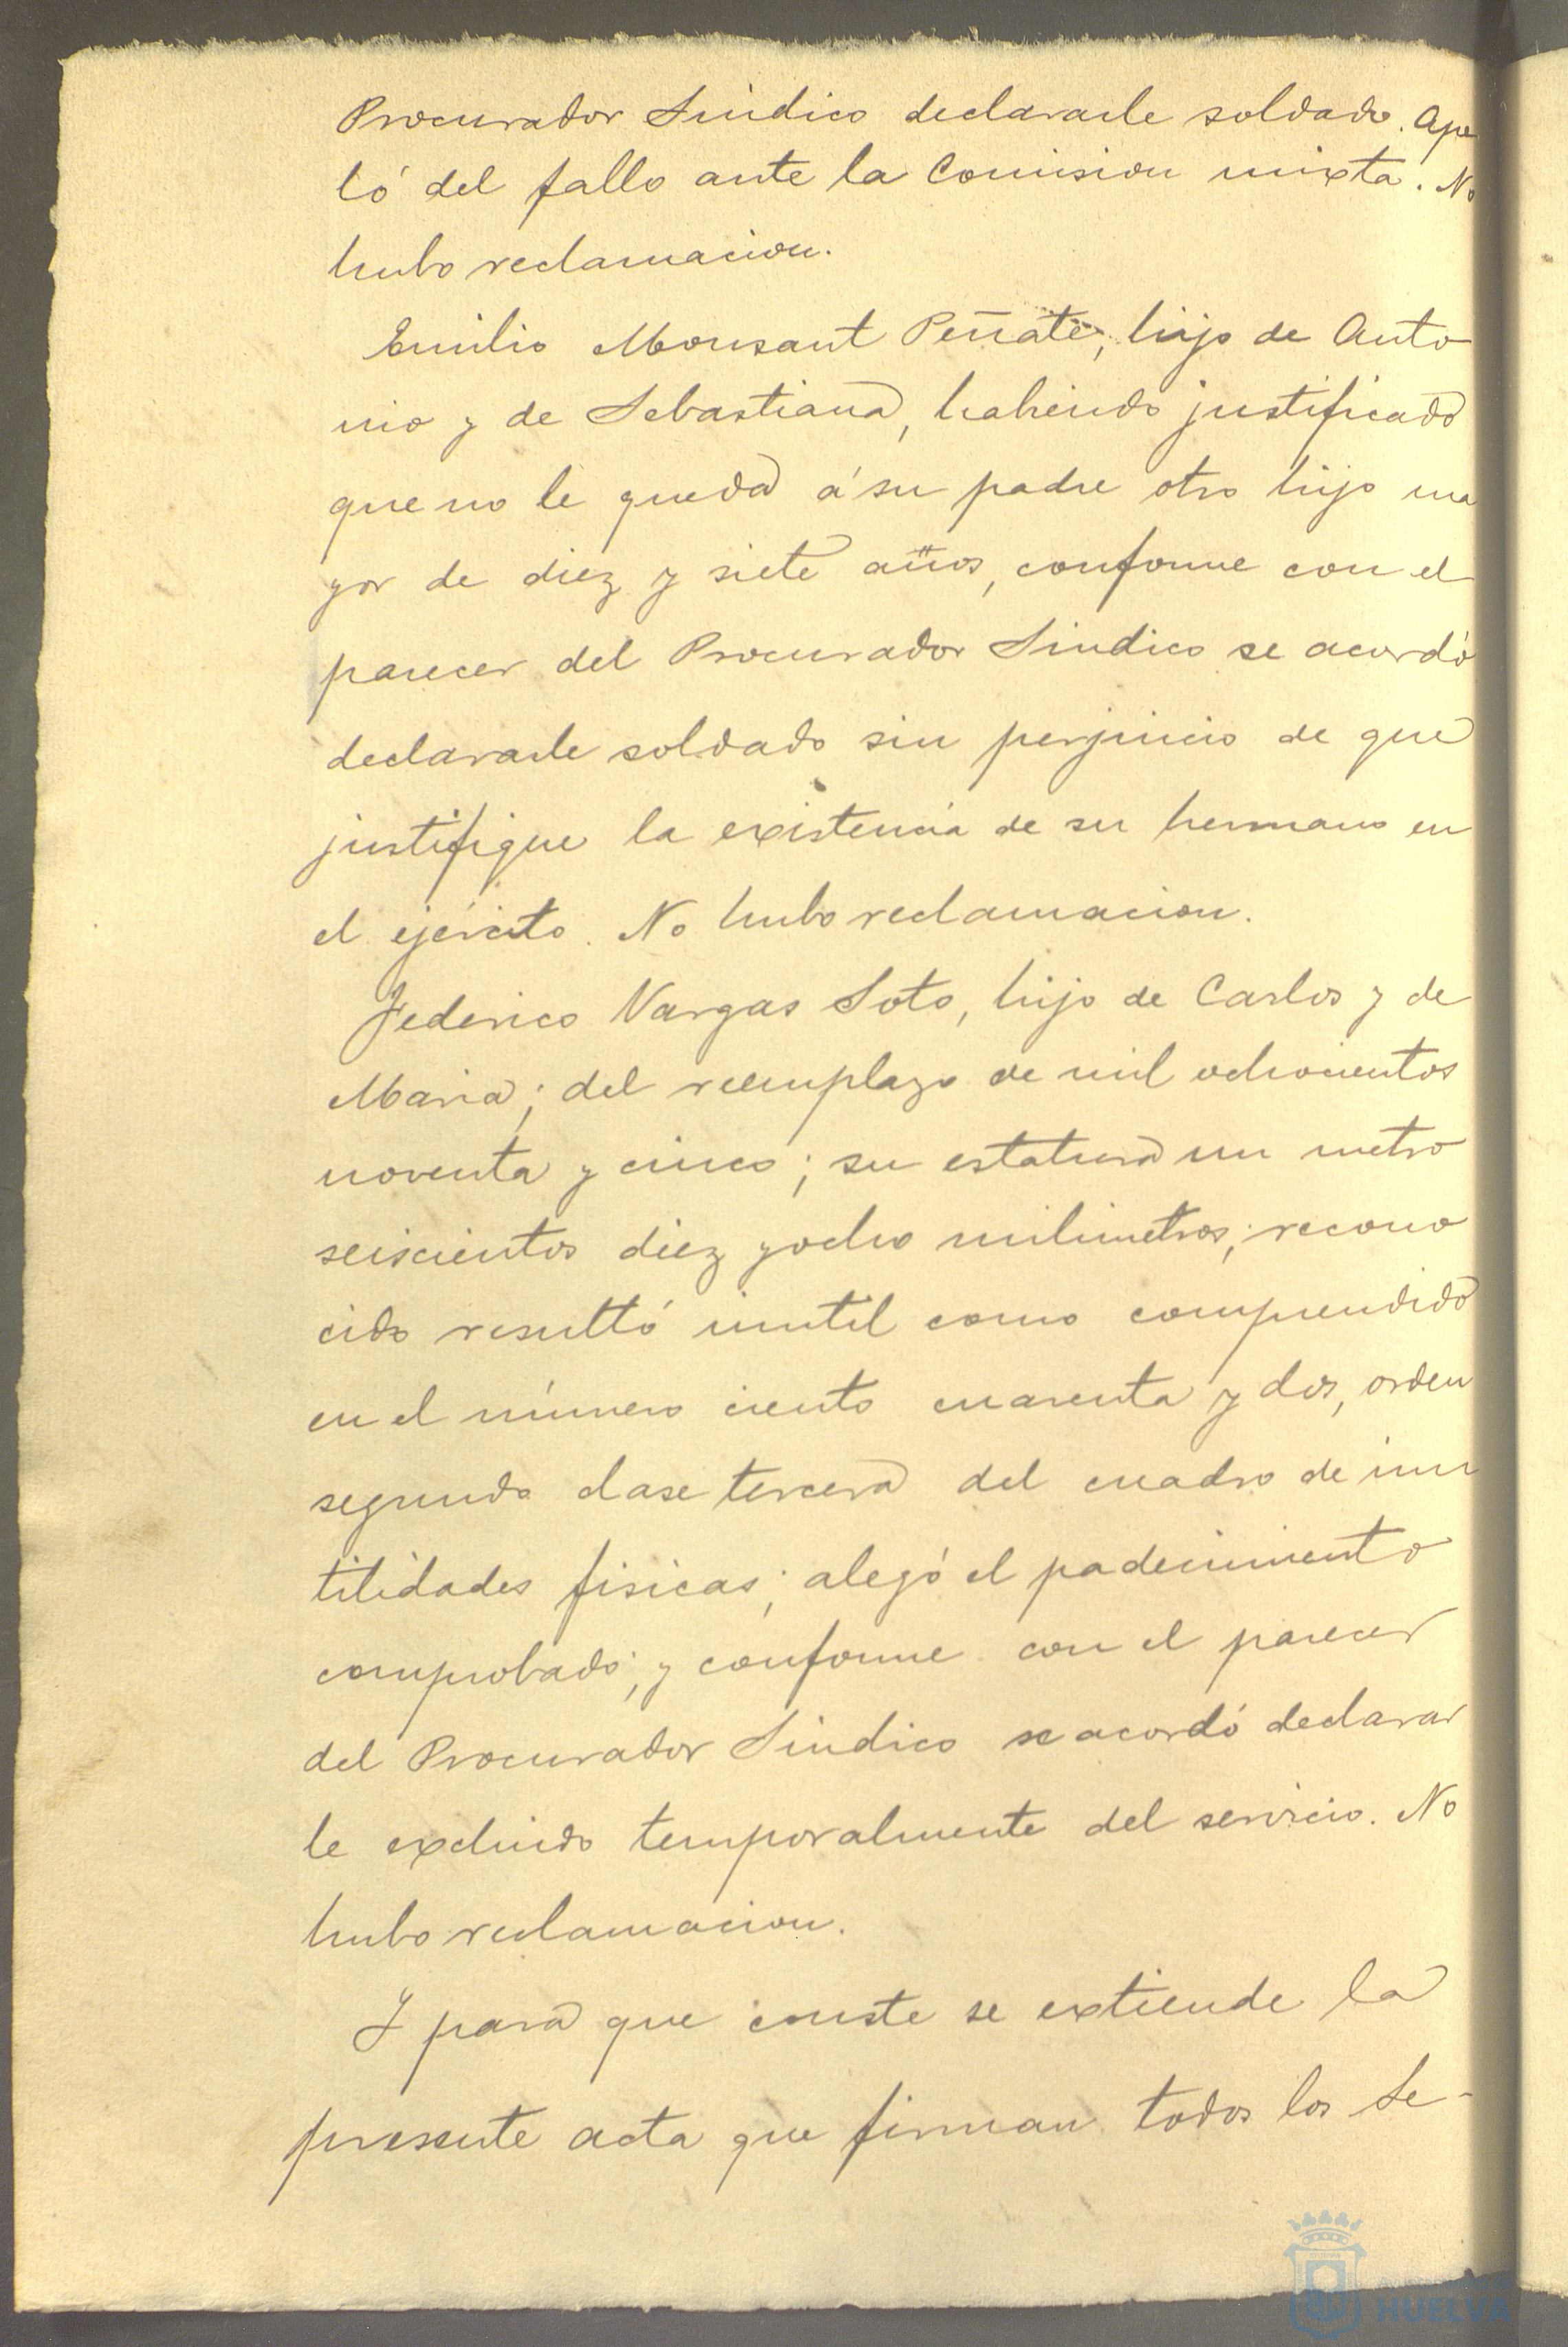 Procurador Sindico declararle soldado. Ape
ló del fallo ante la Comision mixta. No
hubo reclamacion.
Emilio Monsant Peñate, hijo de Anto
nio y de Sebastiana, habiendo justificado
que no le queda á su padre otro hijo ma
yor de diez y siete años, conforme con el
parecer del Procurador Sindico se acordó
declararle soldado sin perjuicio de que
justifique la existencia de su hermano en
el ejército. No hubo reclamacion.
Federico Vargas Soto, hijo de Carlos y de
Maria; del reemplazo de mil ochocientos
noventa y cinco; su estatura un metro
seiscientos diez y ocho milimetros; recono
cido resultó inutil como comprendido
en el número ciento cuarenta y dos, orden
segundo clase tercera del cuadro de inu
tilidades fisicas; alegó el padecimiento
comprobado; y conforme con el parecer
del Procurador Sindico se acordó declarar
le excluido temporalmente del servicio. No
hubo reclamacion.
Y para que conste se extiende la
presente acta que firman todos los Se-
HUELVA